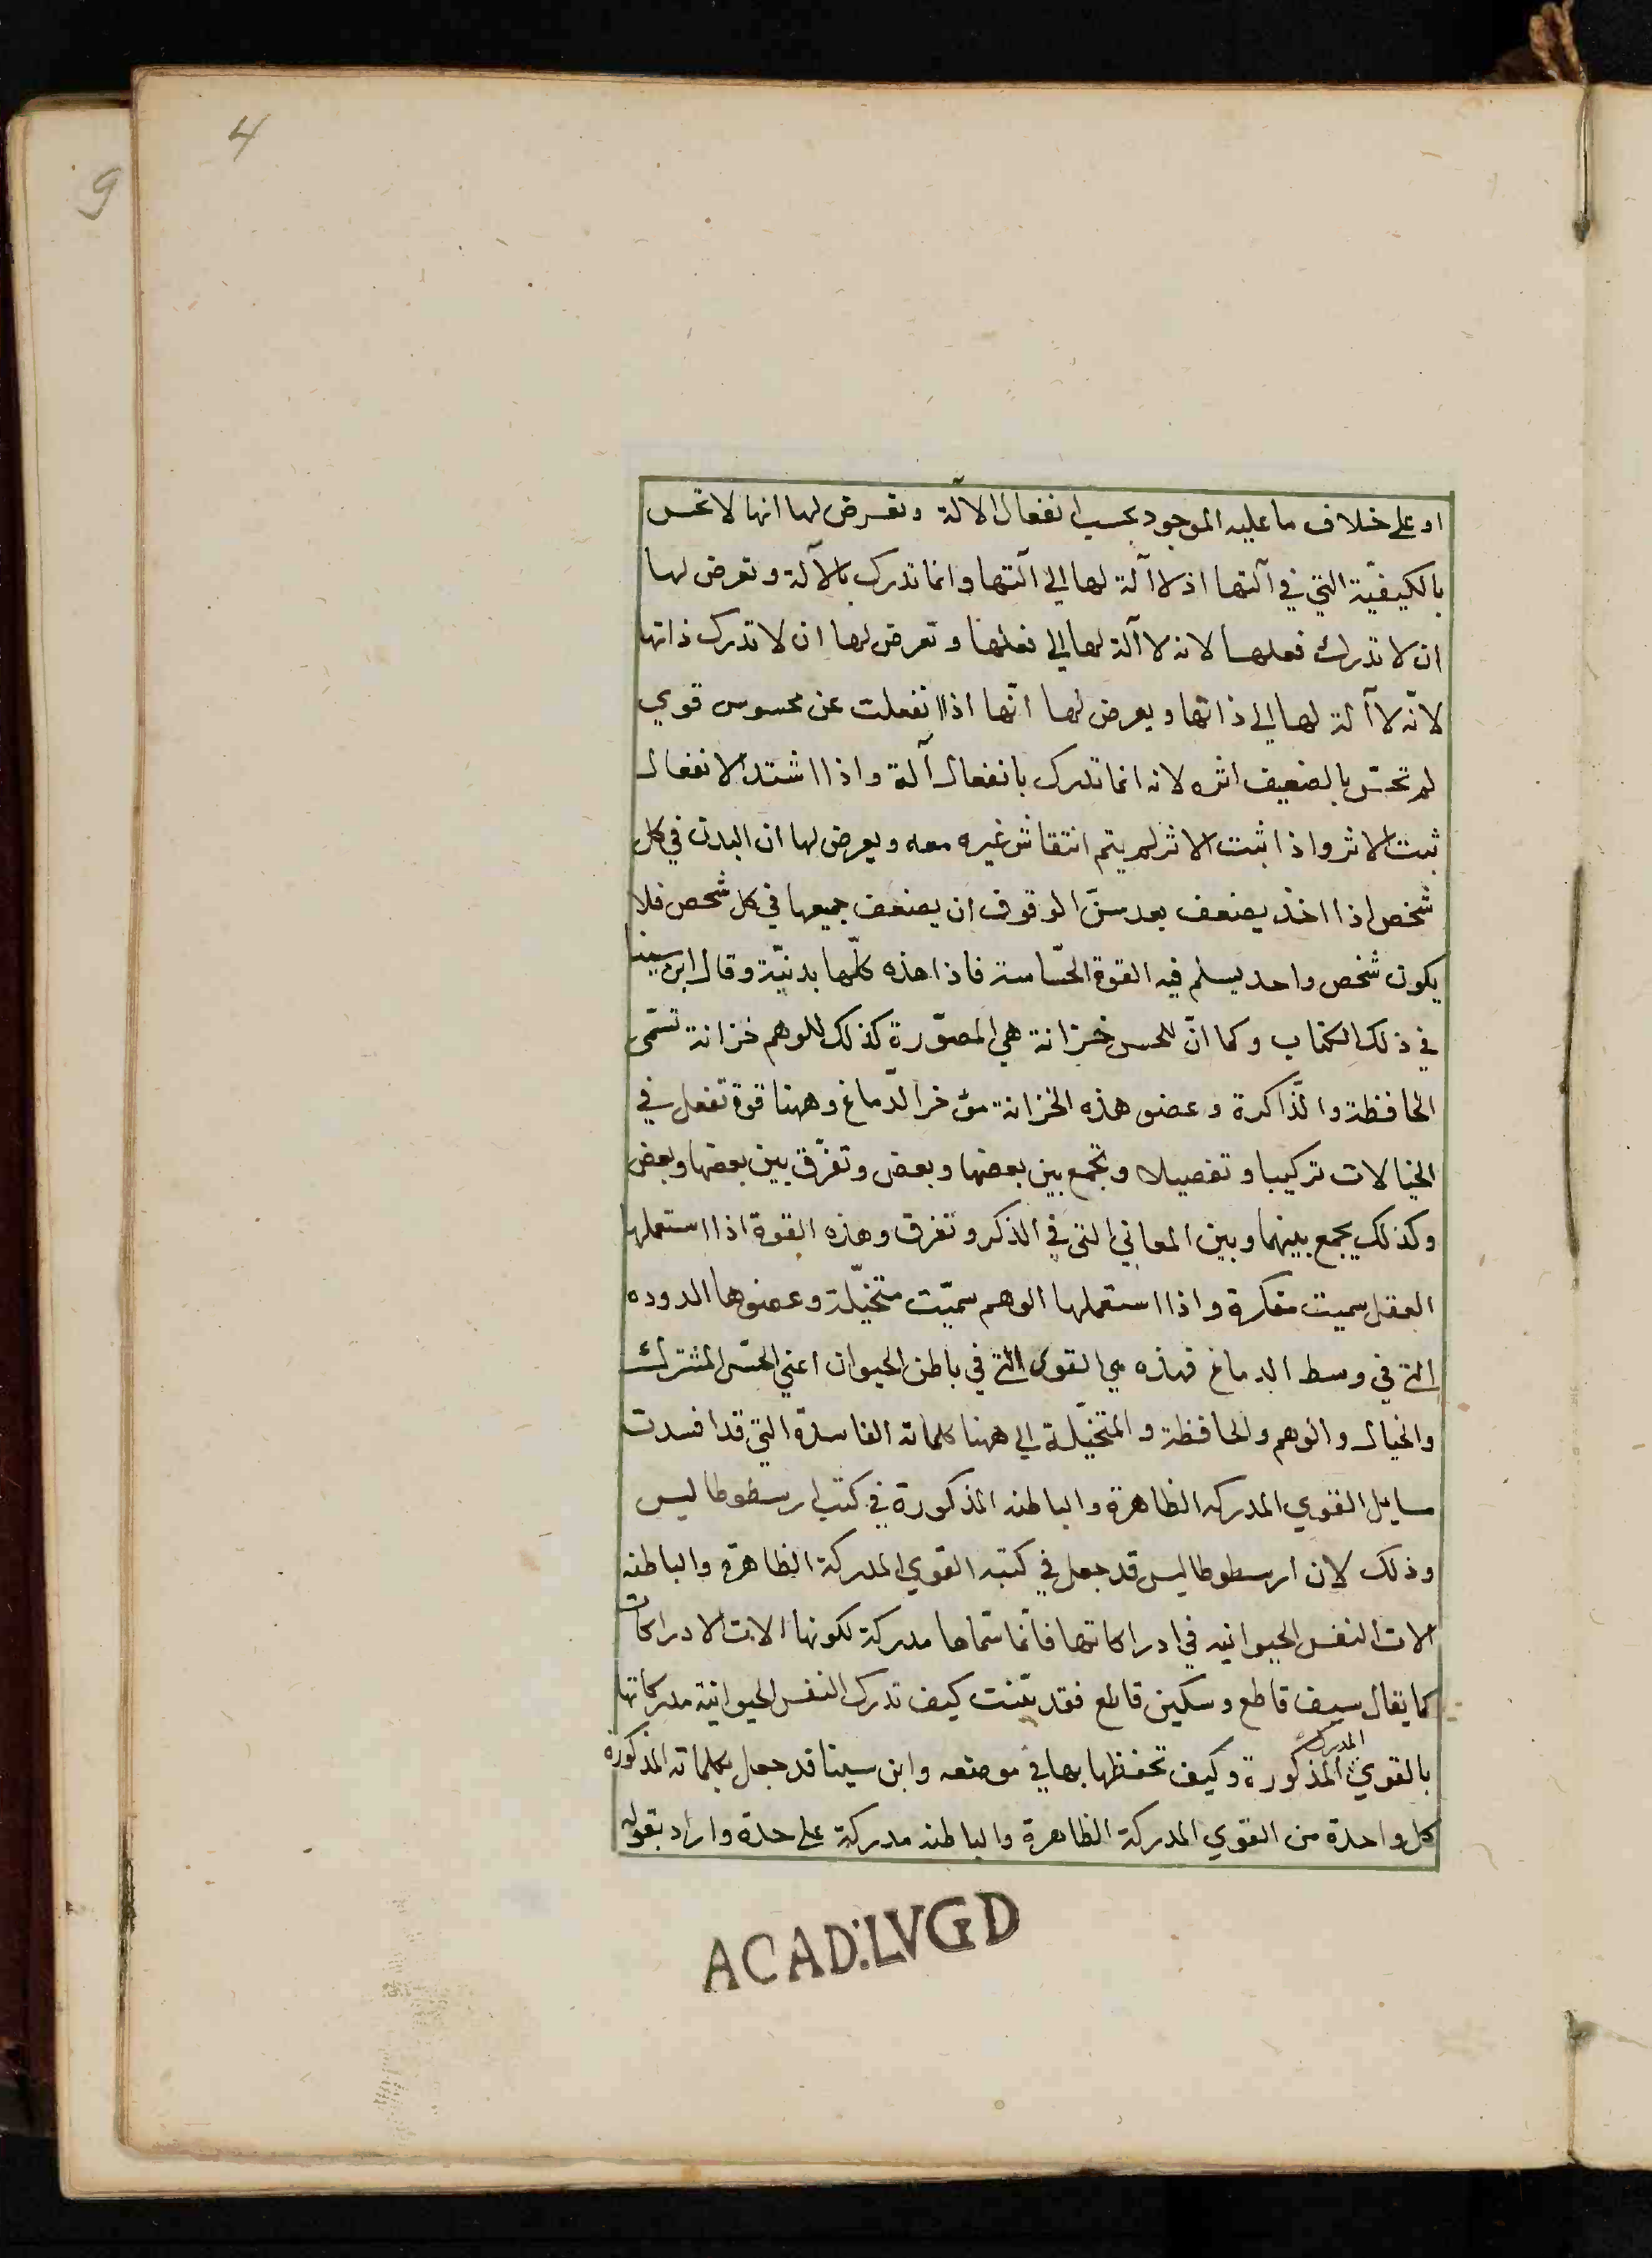 4
9
او على خلاف ما عليه الموجود بحسب انفعال الآلة وتعرض لها انها لا تحس
بالكيفيّة التي في آلتها اذ لا آلة لها الى آلتها وانما تدرك بالآلة وتعرض لها
ان لا تدرك فعلها لانه لا آلة لها الى فعلها وتعرض لها ان لا تدرك ذاتها
لانّه لا آلة لها الى ذاتها ويعرض لها انّها اذا انفعلت عن محسوس قوي
لم تحسّ بالضعيف اثره لانه انما تدرك بانفعال آلة واذا اشتد الانفعال
ثبت الاثر واذا ثبت الاثر لم يتم انتقاش غيره معه ويعرض لها ان البدن في كل
شخص اذا اخذ يضعف بعد سنّ الوقوف ان يضعف جميعها في كل شخص فلا
يكون شخص واحد يسلم فيه القوة الحسّاسة فاذا هذه كلّها بدنيّة وقال ابن سينا
في ذلك الكتاب وكما انّ للحس خزانة هي المصوّرة كذلك للوهم خزانة تسمّى
الحافظة والذّاكرة وعضو هذه الخزانة مؤخر الدّماغ وههنا قوة تفعل في
الخيالات تركيبا وتفصيلا وتجمع بين بعضها وبعض وتفرّق بين بعضها وبعض
وكذلك يجمع بينهما وبين المعاني التي في الذكر وتفرق وهذه القوة اذا استعملها
العقل سميت مفكرة واذا استعملها الوهم سميّت متخيّلة وعضوها الدوده
التي في وسط الدماغ فهذه هي القوى التي في باطن الحيوان اعني الحسّ المشترك
والخيال والوهم والحافظة والمتخيّلة الى ههنا كلماته الفاسدة التي قد افسدت
مسايل القوي المدركه الظاهرة والباطنه المذكورة في كتب ارسطوطاليس
وذلك لان ارسطوطاليس قد جعل في كتبه القوي المدركة الظاهرة والباطنه
الات النفس الحيوانيه في ادراكاتها فانّما سمّاها مدركة لكونها الات الادراكات
كما يقال سيف قاطع وسكين قاطع فقد بيّنت كيف تدرك النفس الحيوانية مدركاتها
بالقوي المدركة المذكورة وكيف تحفظها بها في موضعه وابن سينا قد جعل بكلماته المذكورة
كل واحدة من القوي المدركة الظاهرة والباطنه مدركة على حدة واراد بقوله
ACAD:LVGD